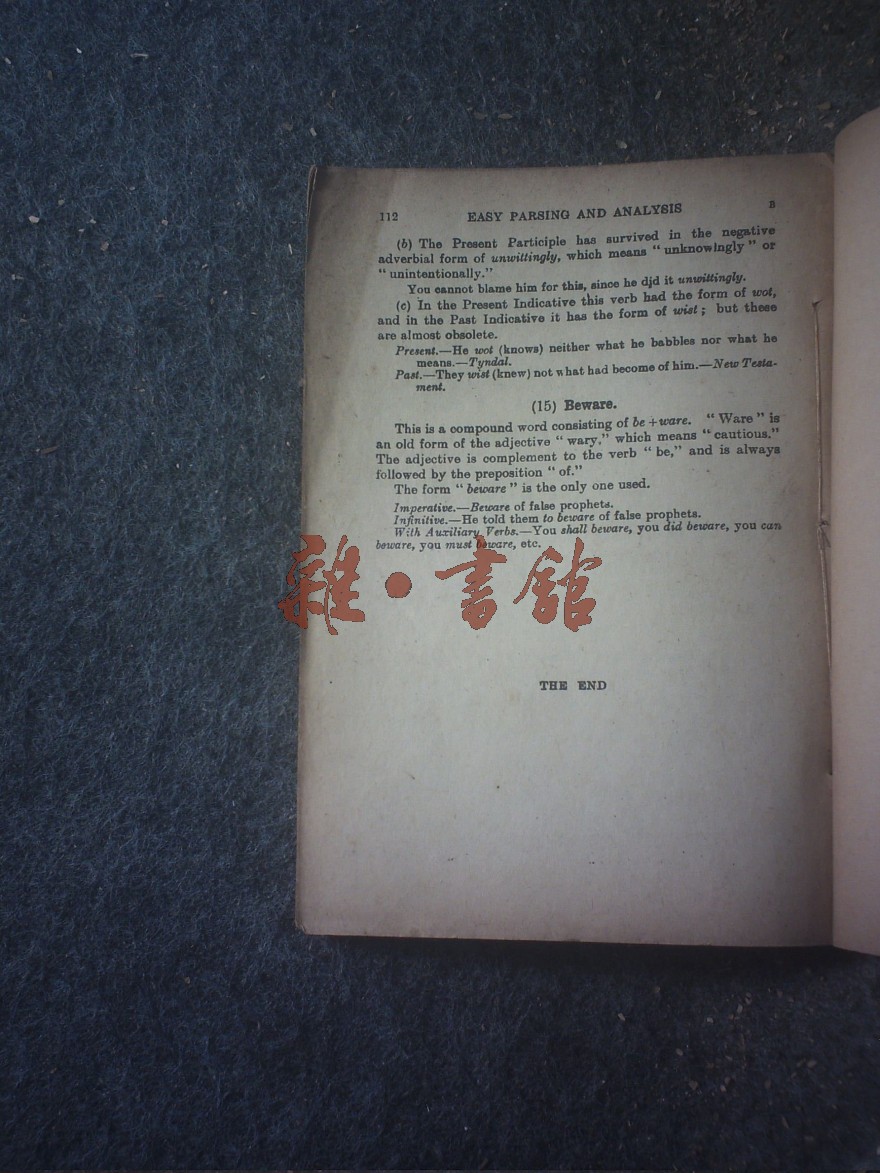 112 EASY PARSING AND ANALYSIS B
(b) The Present Participle has survived in the negative
adverbial form of unwittingly, which means “ unknowingly ” or
“ unintentionally.”
You cannot blame him for this, since he did it unwittingly.
(c) In the Present Indicative this verb had the form of wot,
and in the Past Indicative it has the form of wist ; but these
are almost obsolete.
Present.—He wot (knows) neither what he babbles nor what he
means.—Tyndal.
Past.—They wist (knew) not what had become of him.—New Testa-
ment.
(15) Beware.
This is a compound word consisting of be + ware. “ Ware ” is
an old form of the adjective “ wary,” which means “ cautious.”
The adjective is complement to the verb “ be,” and is always
followed by the preposition “ of.”
The form “ beware ” is the only one used.
Imperative.—Beware of false prophets.
Infinitive.—He told them to beware of false prophets.
With Auxiliary Verbs.—You shall beware, you did beware, you can
beware, you must beware, etc.
雜·書館
THE END